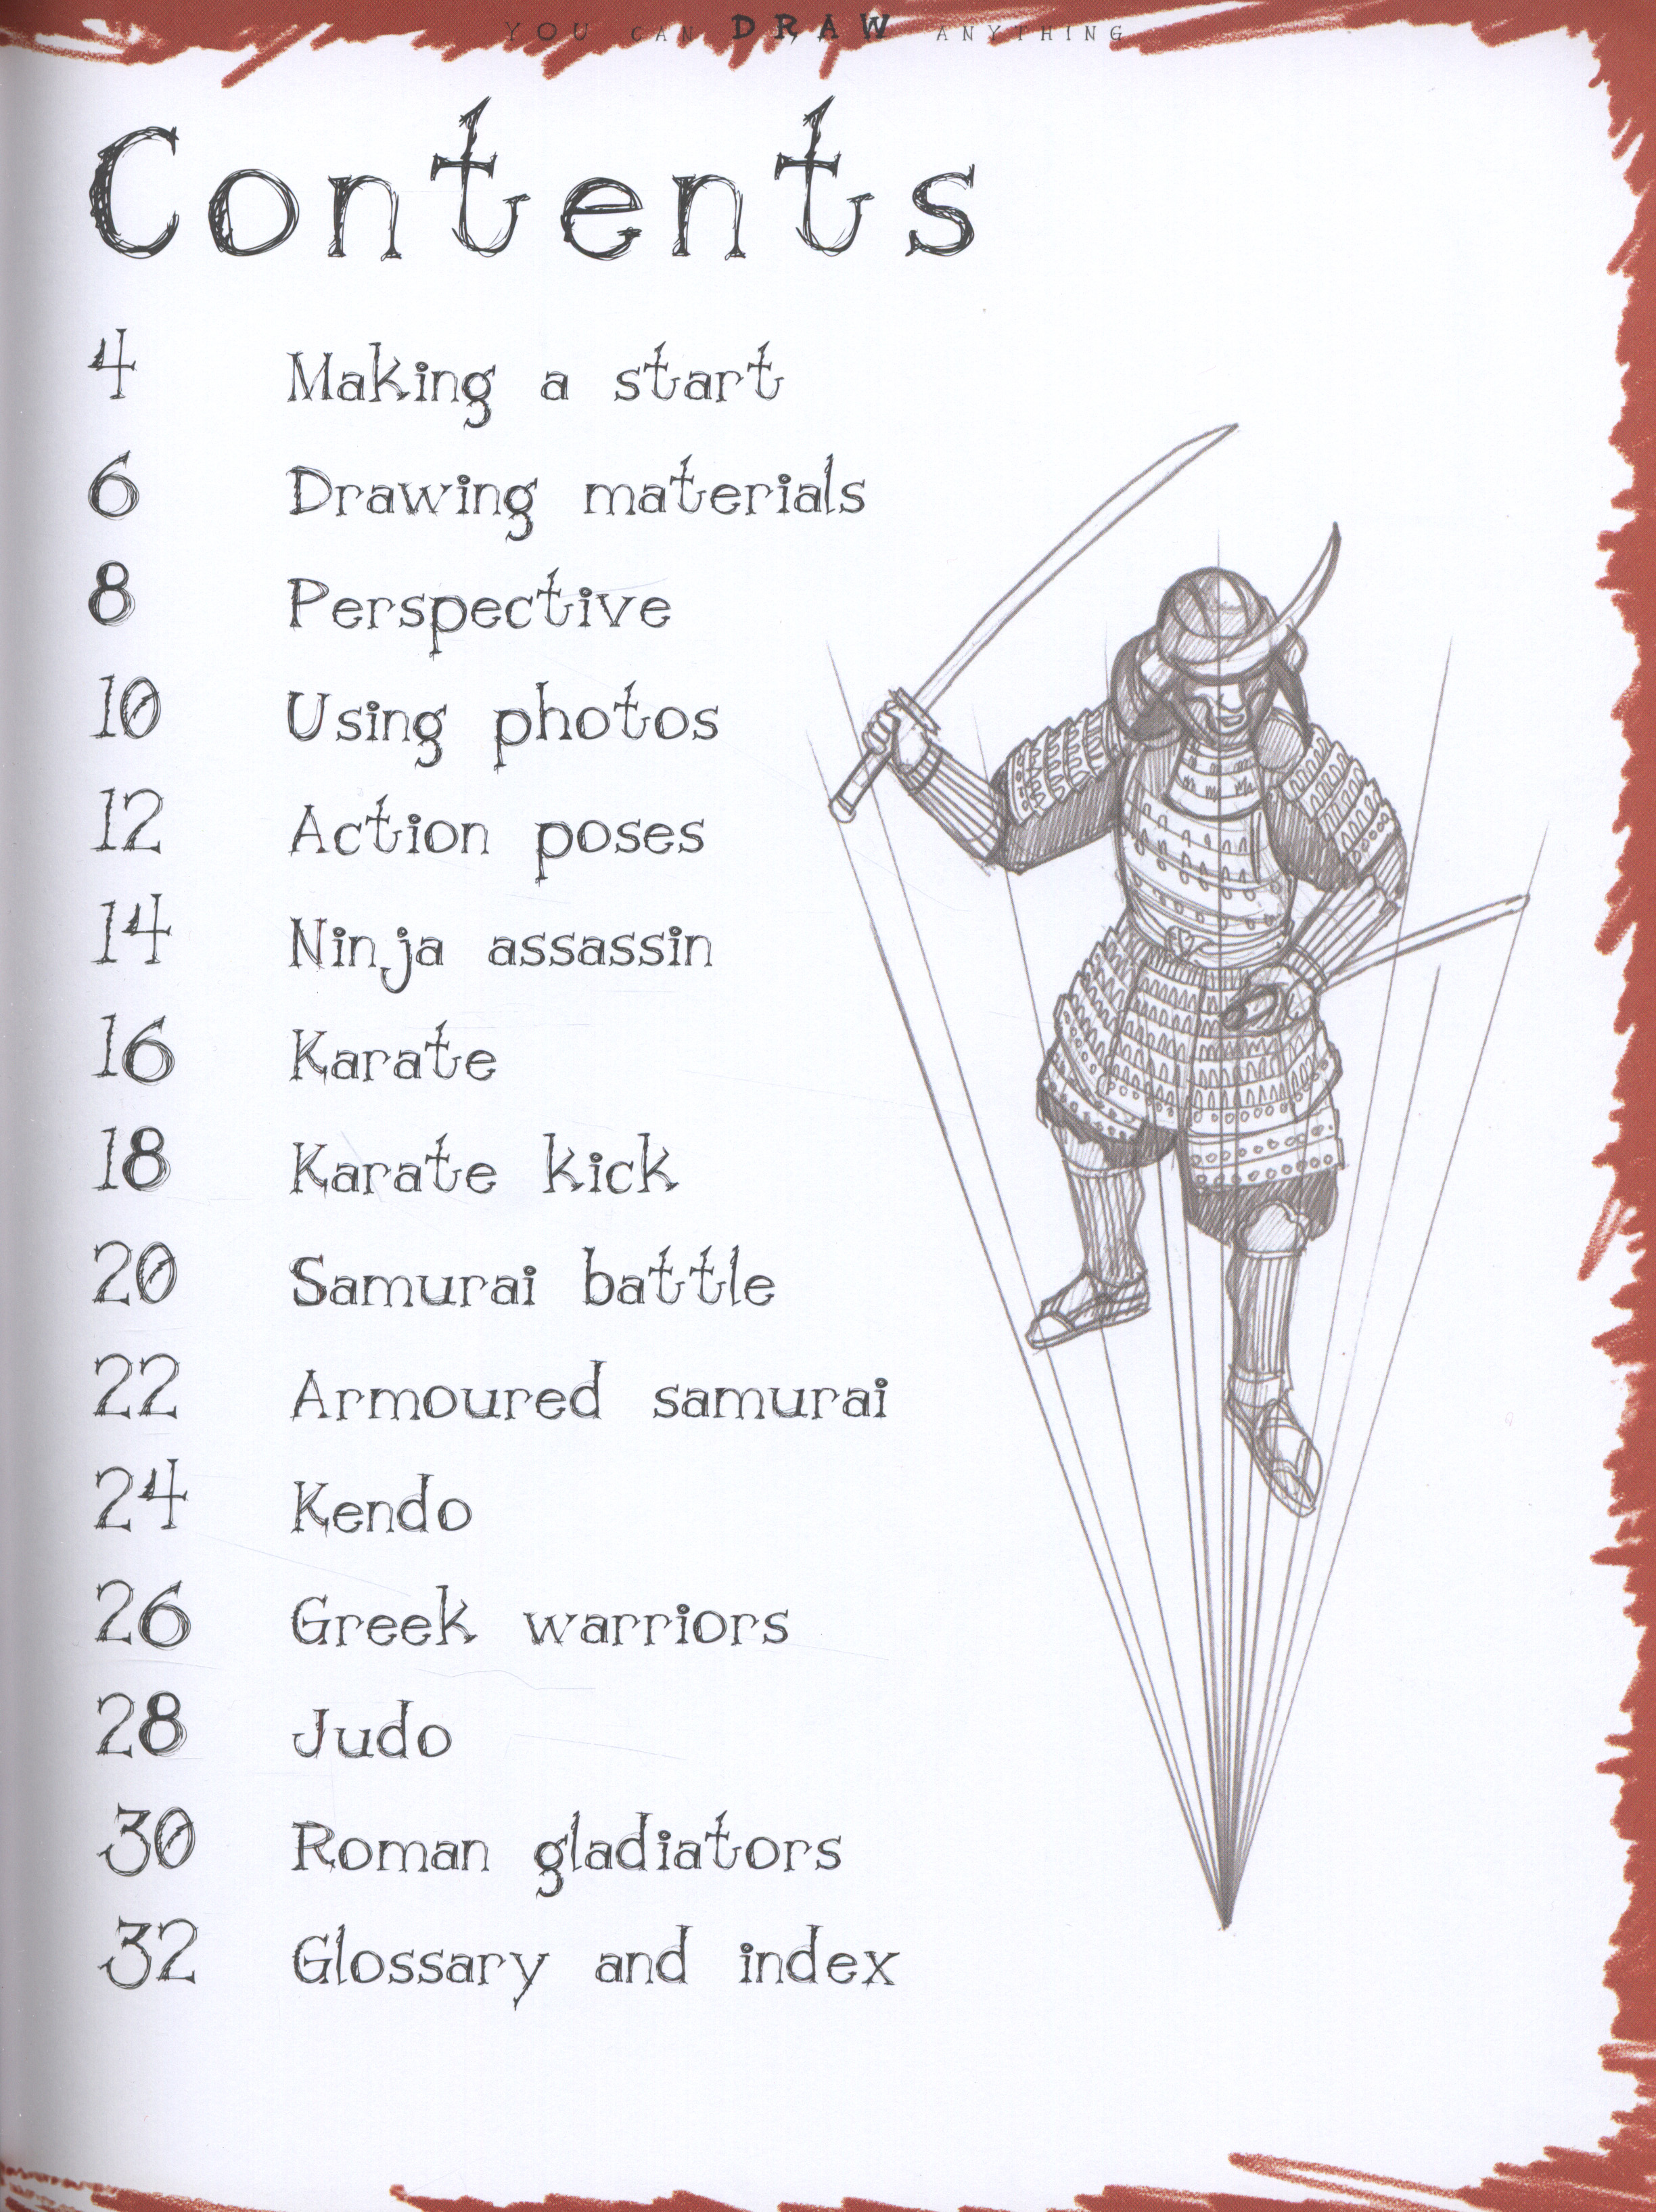 YOU CAN DRAW ANYTHING
Contents
4 Making a start
6 Drawing materials
8 Perspective
10 Using photos
12 Action poses
14 Ninja assassin
16 Karate
18 Karate kick
20 Samurai battle
22 Armoured samurai
24 Kendo
26 Greek warriors
28 Judo
30 Roman gladiators
32 Glossary and index